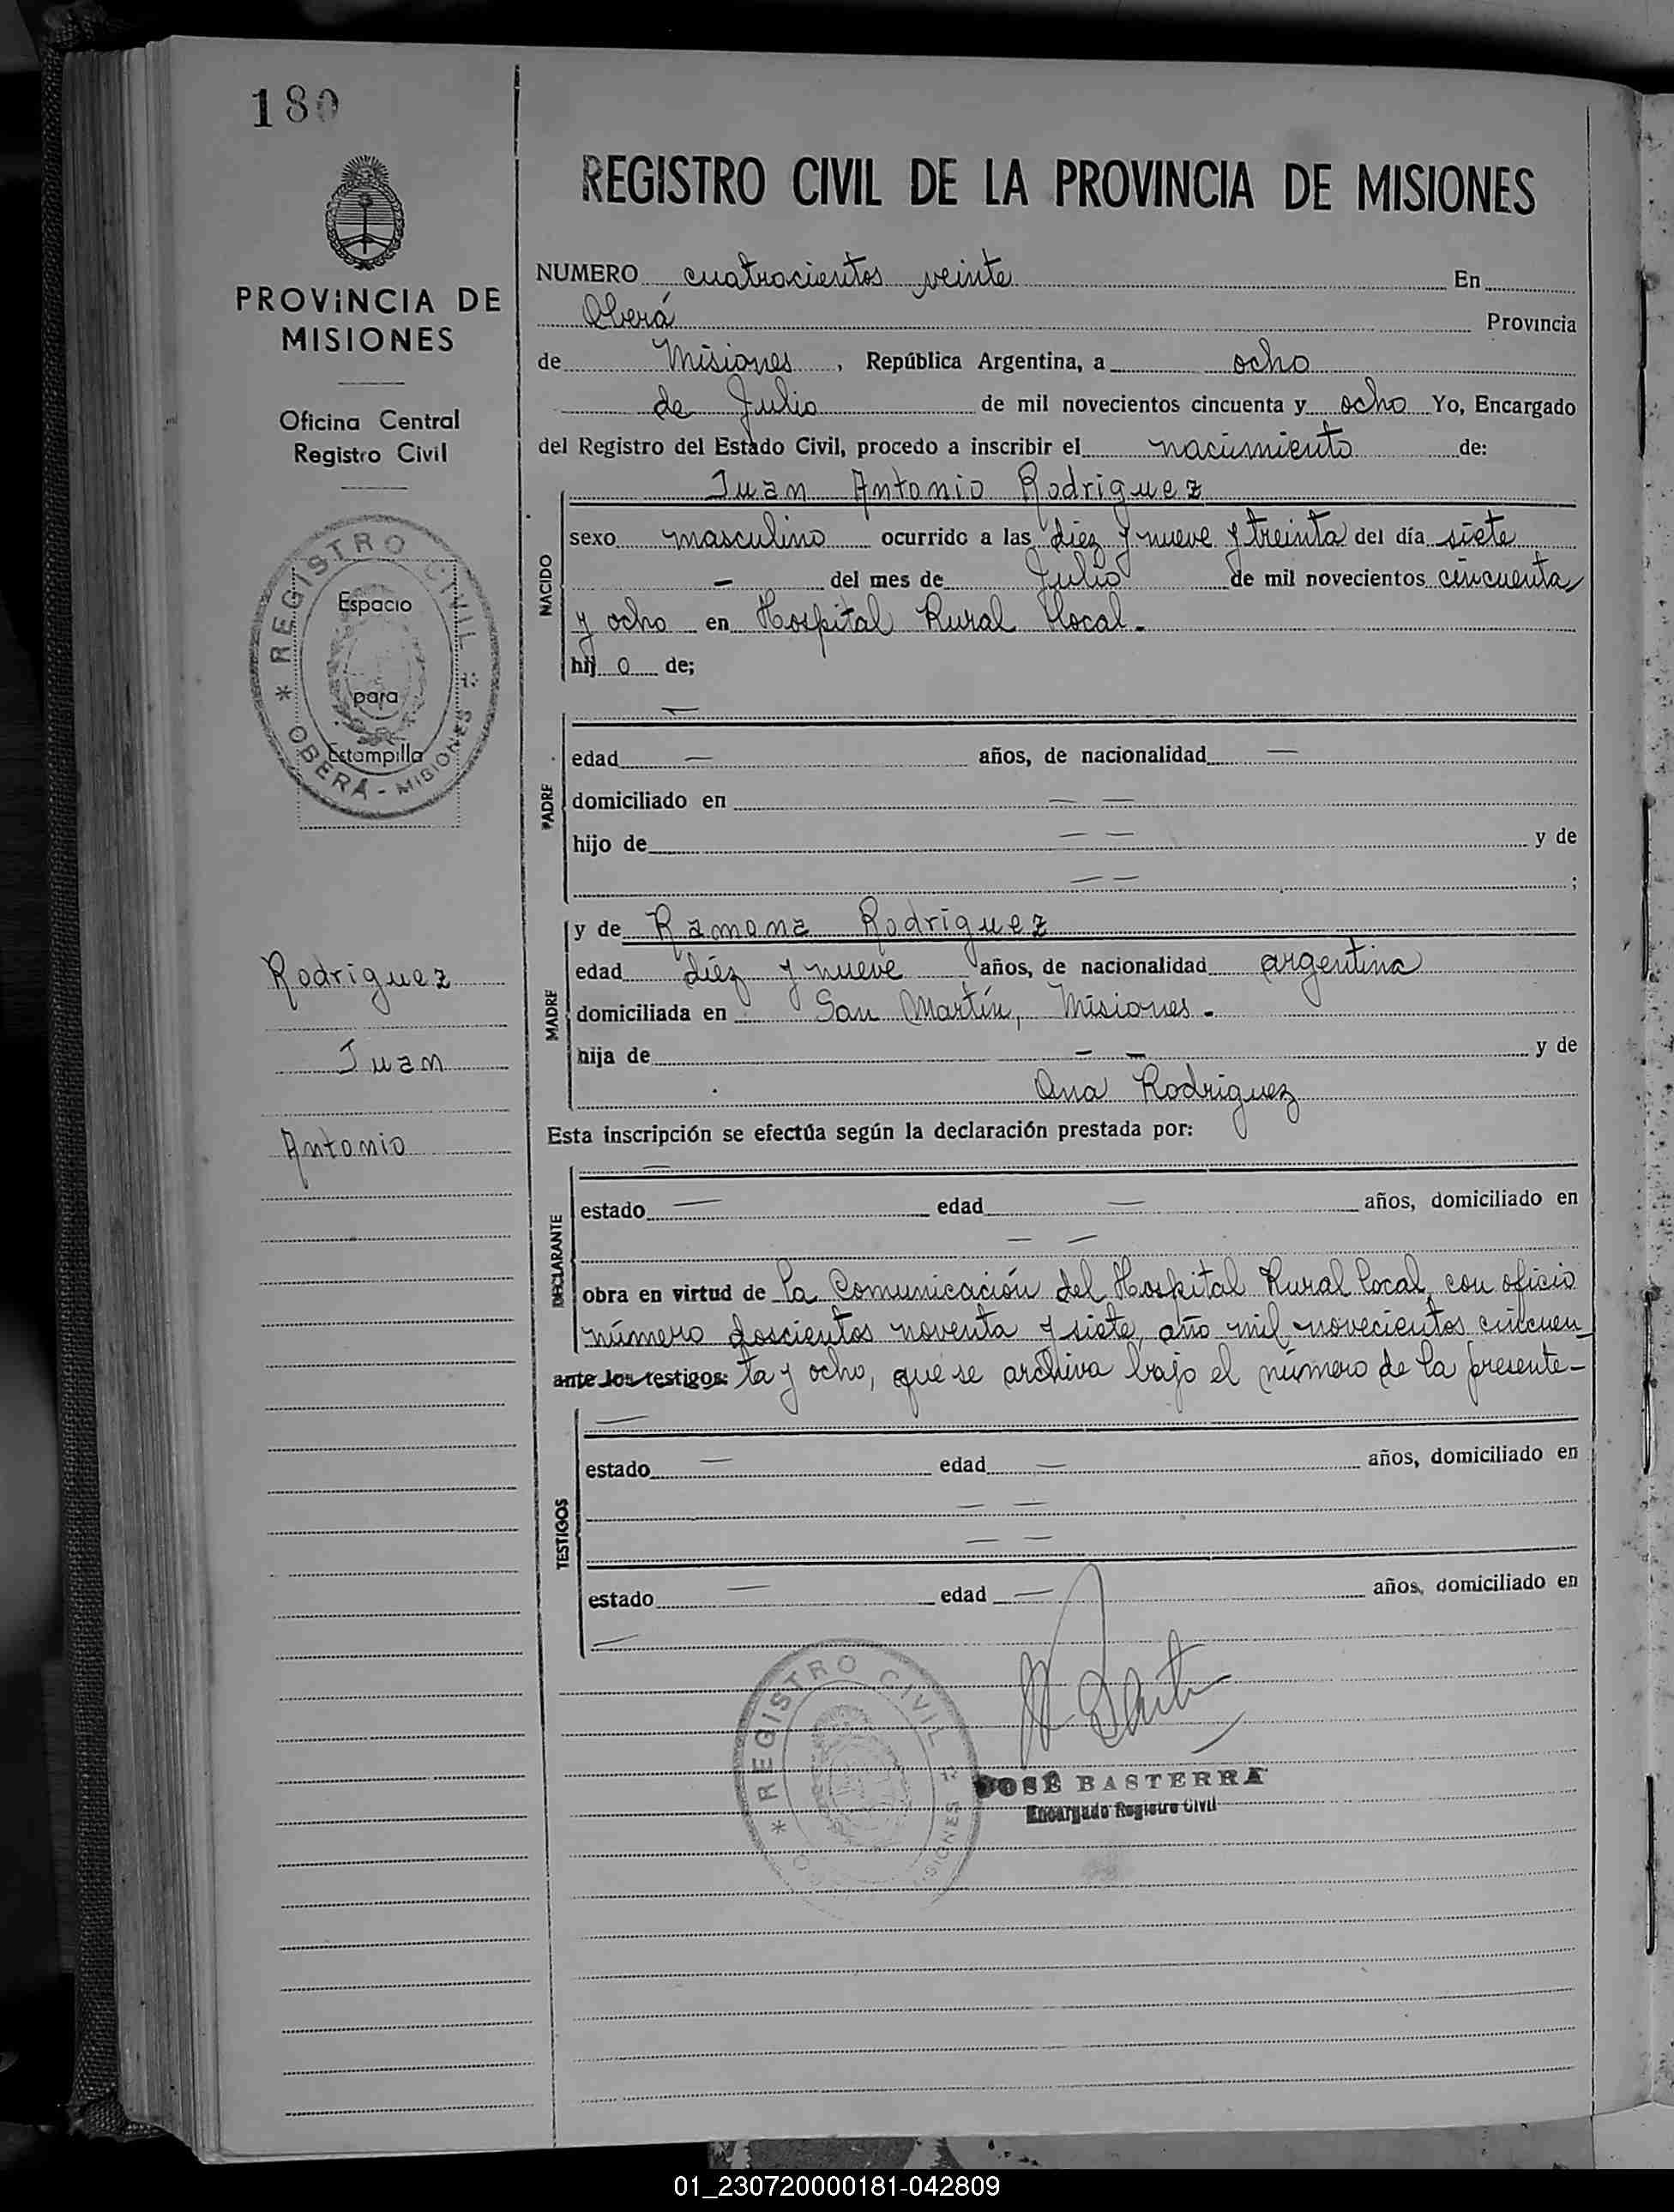 180
PROVINCIA DE
MISIONES
Oficina Central
Registro Civil
* REGISTRO CIVIL *
OBERÁ - MISIONES
Espacio
para
Estampilla
Rodriguez
Juan
Antonio
REGISTRO CIVIL DE LA PROVINCIA DE MISIONES
NUMERO cuatrocientos veinte En
Oberá Provincia
de Misiones, República Argentina, a ocho
de Julio de mil novecientos cincuenta y ocho Yo, Encargado
del Registro del Estado Civil, procedo a inscribir el nacimiento de:
Juan Antonio Rodriguez
NACIDO
sexo masculino ocurrido a las diez y nueve y treinta del día siete
— del mes de Julio de mil novecientos cincuenta
y ocho en Hospital Rural local.-
hij o de;
PADRE
—
edad — años, de nacionalidad —
domiciliado en — —
hijo de — — y de
— — ;
MADRE
y de Ramona Rodriguez
edad diez y nueve años, de nacionalidad argentina
domiciliada en San Martín, Misiones.-
hija de — — y de
Ana Rodriguez
Esta inscripción se efectúa según la declaración prestada por:
DECLARANTE
—
estado — edad — años, domiciliado en
— —
obra en virtud de la Comunicación del Hospital Rural local, con oficio
número doscientos noventa y siete, año mil novecientos cincuen_
ante los testigos: ta y ocho, que se archiva bajo el número de la presente-
TESTIGOS
—
estado — edad — años, domiciliado en
— —
— —
estado — edad — años, domiciliado en
—
* REGISTRO CIVIL *
JOSÉ BASTERRA
Encargado Registro Civil
01_230720000181-042809